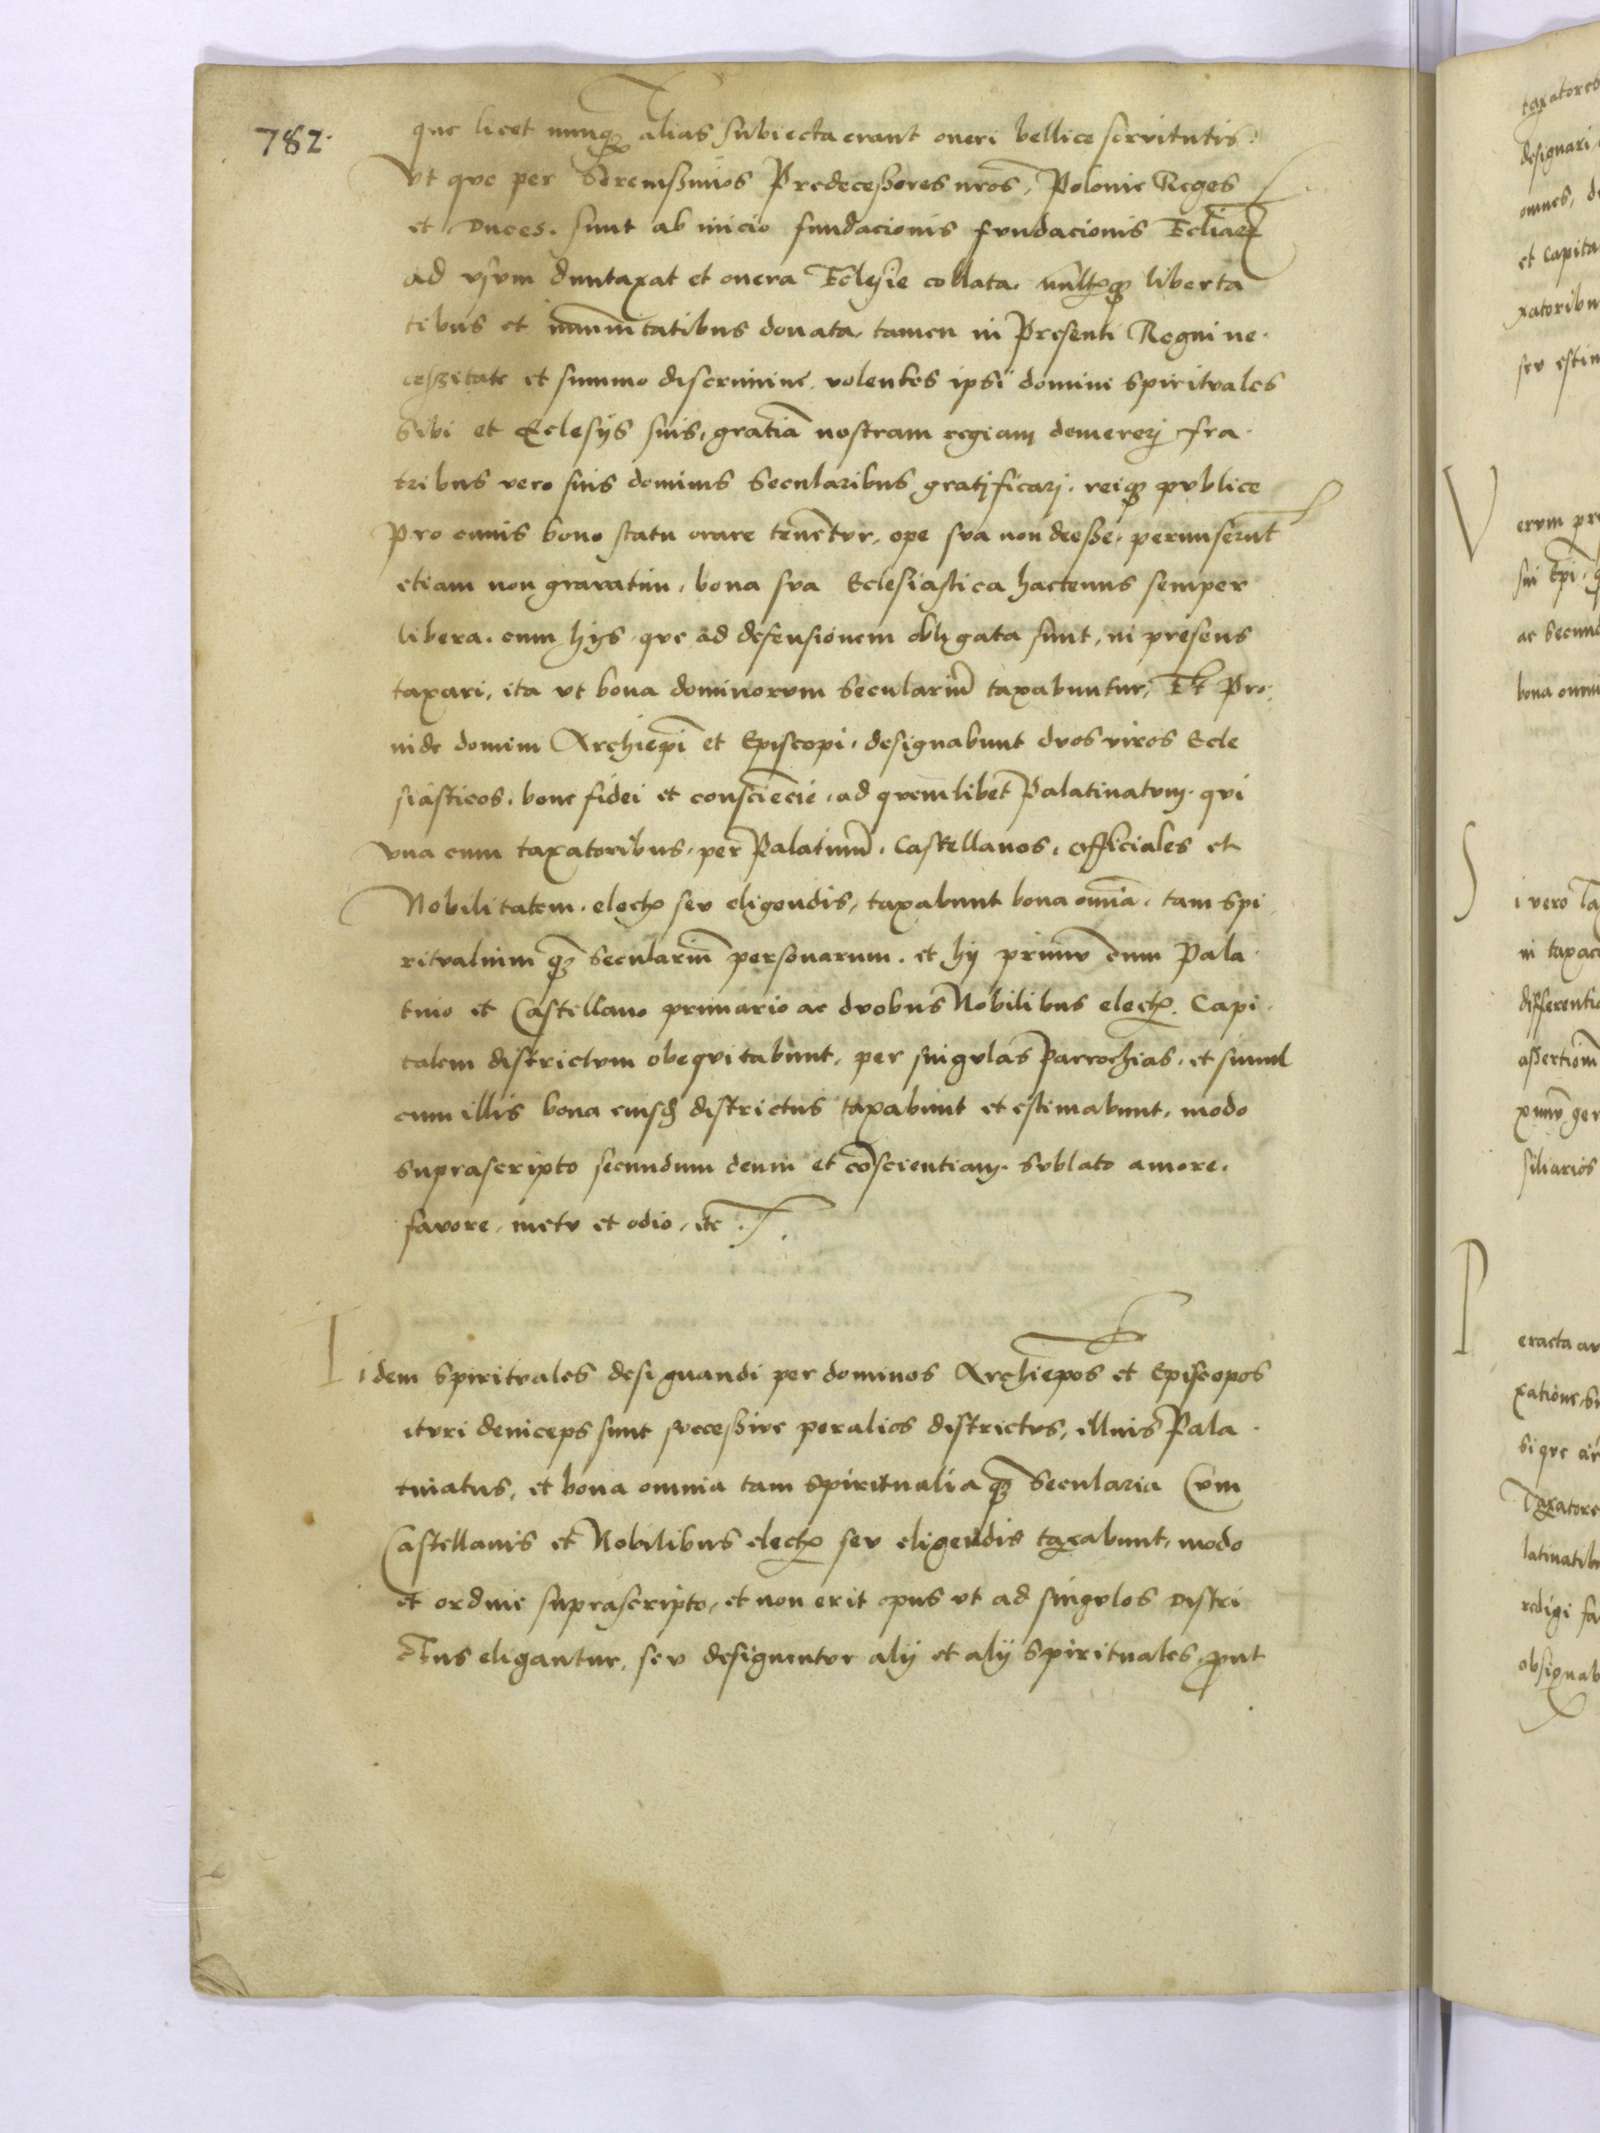 782.
que licet nunq̃ alias subiecta erant oneri bellice servitutis.
Vt que per Serenissimos Predecessores nr̃os, Polonie Reges
et Duces. sunt ab inicio fundacionis fvndacionis Ecl̃iarꝝ
ad vsvm duntaxat et onera Eclesie collata. mult̃isqꝫ liberta
tibus et im̃unitatibus donata, tamen in presenti Regni ne.
cessitate et summo discrimine, volentes ipsi domini spiritvales
Sibi et Eclesijs suis, gratiã nostram regiam demererj fra.
tribus vero suis dominis Secularibus gratificarj. reiqꝫ pvblice
pro cuius bono statu orare tenẽtvr, ope sva non deesse, permiserũt
etiam non gravatim, bona sva Eclesiastica hactenus semper
libera. cum hijs que ad defensionem obligata sunt, in presens
taxari, ita vt bona dominorvm seculariũ taxabuntur, Et pro.
inde domini Archiep̃i et Episcopi, designabunt dvos viros Ecle
siasticos, bone fidei et consciẽcie, ad qvemlibet Palatinatvm. qvi
vna cum taxatoribus, per Palatinũ, Castellanos, officiales et
Nobilitatem, elect̃ sev eligendis, taxabunt bona om̃ia, tam spi
ritvalium qꝫ seculariũ personarum. et hij primv̄ cum Pala.
tino et Castellano primario ac dvobus Nobilibus elect̃. Capi.
talem districtvm obeqvitabunt, per singvlas Parrochias, et simul
cum illis bona eiusd̃ districtus taxabunt et estimabunt, modo
suprascripto secundum deum et cõscientiam. svblato amore.
favore, metv et odio, etc.
Iidem spiritvales designandi per dominos Archiep̃os et Episcopos
itvri deinceps sunt svccessive per alios districtvs, illius Pala.
tinatus, et bona omnia tam spiritualia qꝫ Secularia Cvm
Castellanis et Nobilibus elect̃ sev eligendis taxabunt, modo
et ordine suprascripto, et non erit opus vt ad singvlos Distri
ctus eligantur, sev designentvr alij et alij spirituales prout